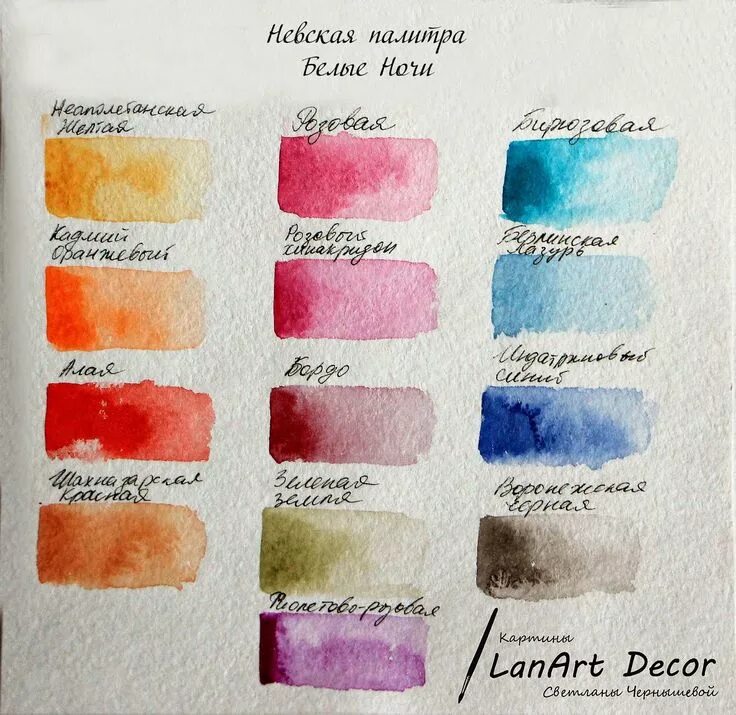 Невская палитра
Белые Ночи
Неаполетанская
Желтая
Розовая
Бирюзовая
Кадмий
Оранжевый
Розовый
хинакридон
Берлинская
Лазурь
Алая
Бордо
Индатреновый
синий
Шахназарская
Красная
Зеленая
земля
Воронежская
черная
Фиолетово-розовая
Картины
LanArt Decor
Светланы Чернышевой